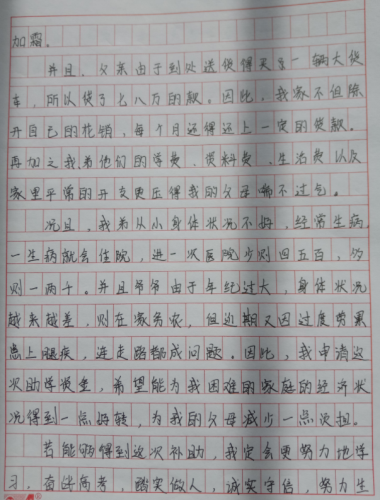 加霜。
并且，父亲由于到处送货得买了一辆大货
车，所以贷了七八万的款。因此，我家不但除
开自己的花销，每个月还得还上一定的贷款。
再加之我弟他们的学费、资料费、生活费以及
家里平常的开支更压得我的父母喘不过气。
况且，我弟从小身体状况不好，经常生病，
一生病就会住院，进一次医院少则四五百，多
则一两千。并且爷爷由于年纪过大，身体状况
越来越差，则在家务农，但近期又因过度劳累
患上腿疾，连走路都成问题。因此，我申请这
次助学奖金，希望能为我困难的家庭的经济状
况得到一点好转，为我的父母减少一点负担。
若能够得到这次补助，我定会更努力地学
习，奋进高考，踏实做人，诚实守信，努力生